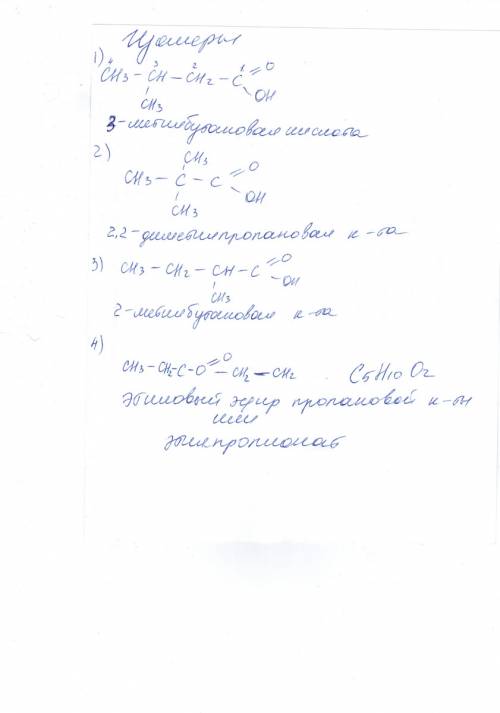 Изомеры
1) ⁴CH₃ – ³CH – ²CH₂ – ¹C =O
CH₃ OH
3-метилбутановая кислота
2) CH₃
CH₃ – C – C =O
CH₃ OH
2,2-диметилпропановая к-та
3) CH₃ – CH₂ – CH – C =O
CH₃ – OH
2-метилбутановая к-та
4)
CH₃ – CH₂ – C – O =O – CH₂ – CH₂ . C₅H₁₀O₂
этиловый эфир пропановой к-ты
или
этилпропионат